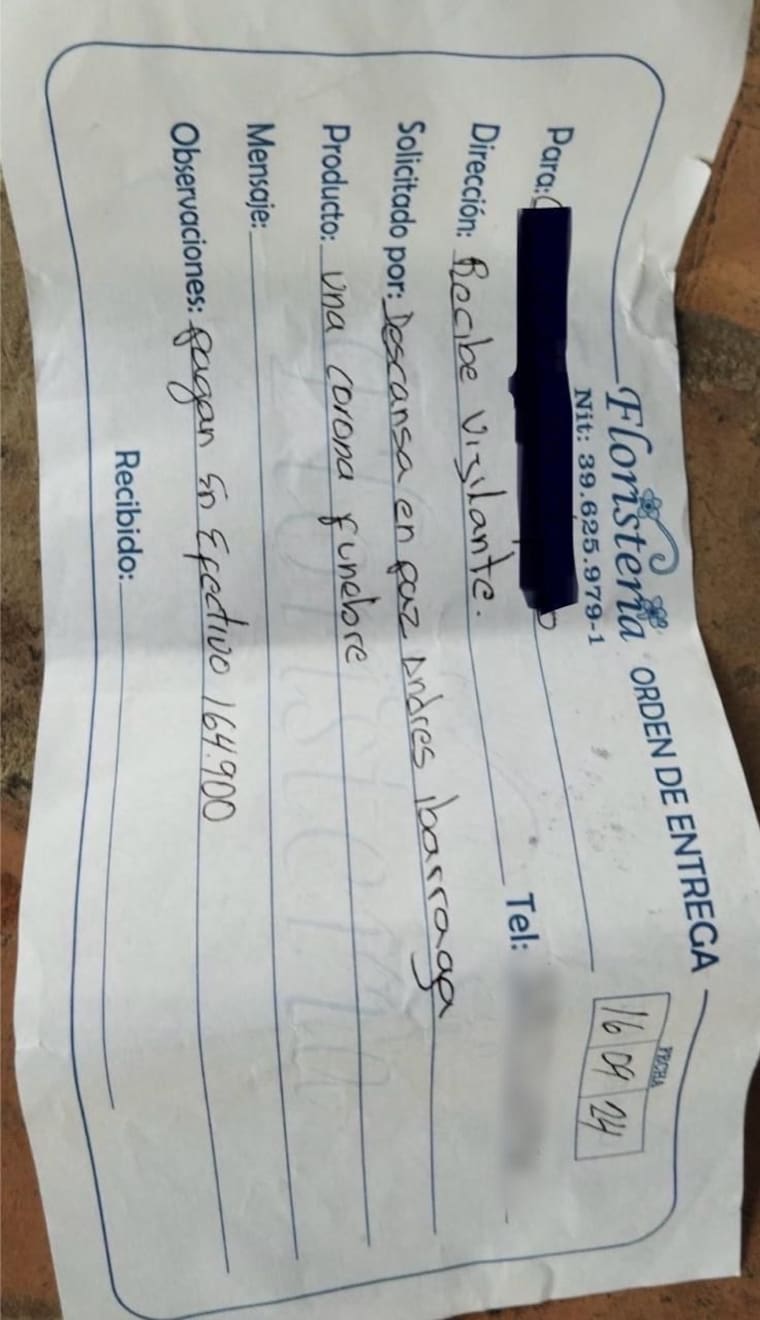 Floristería ORDEN DE ENTREGA
Nit: 39.625.979-1
FECHA
16 09 24
Para:
Dirección: Recibe Vigilante. Tel:
Solicitado por: Descansa en paz Andres Ibarraga
Producto: una corona funebre
Mensaje:
Observaciones: pagan En Efectivo 164.900
Recibido:
Floristería